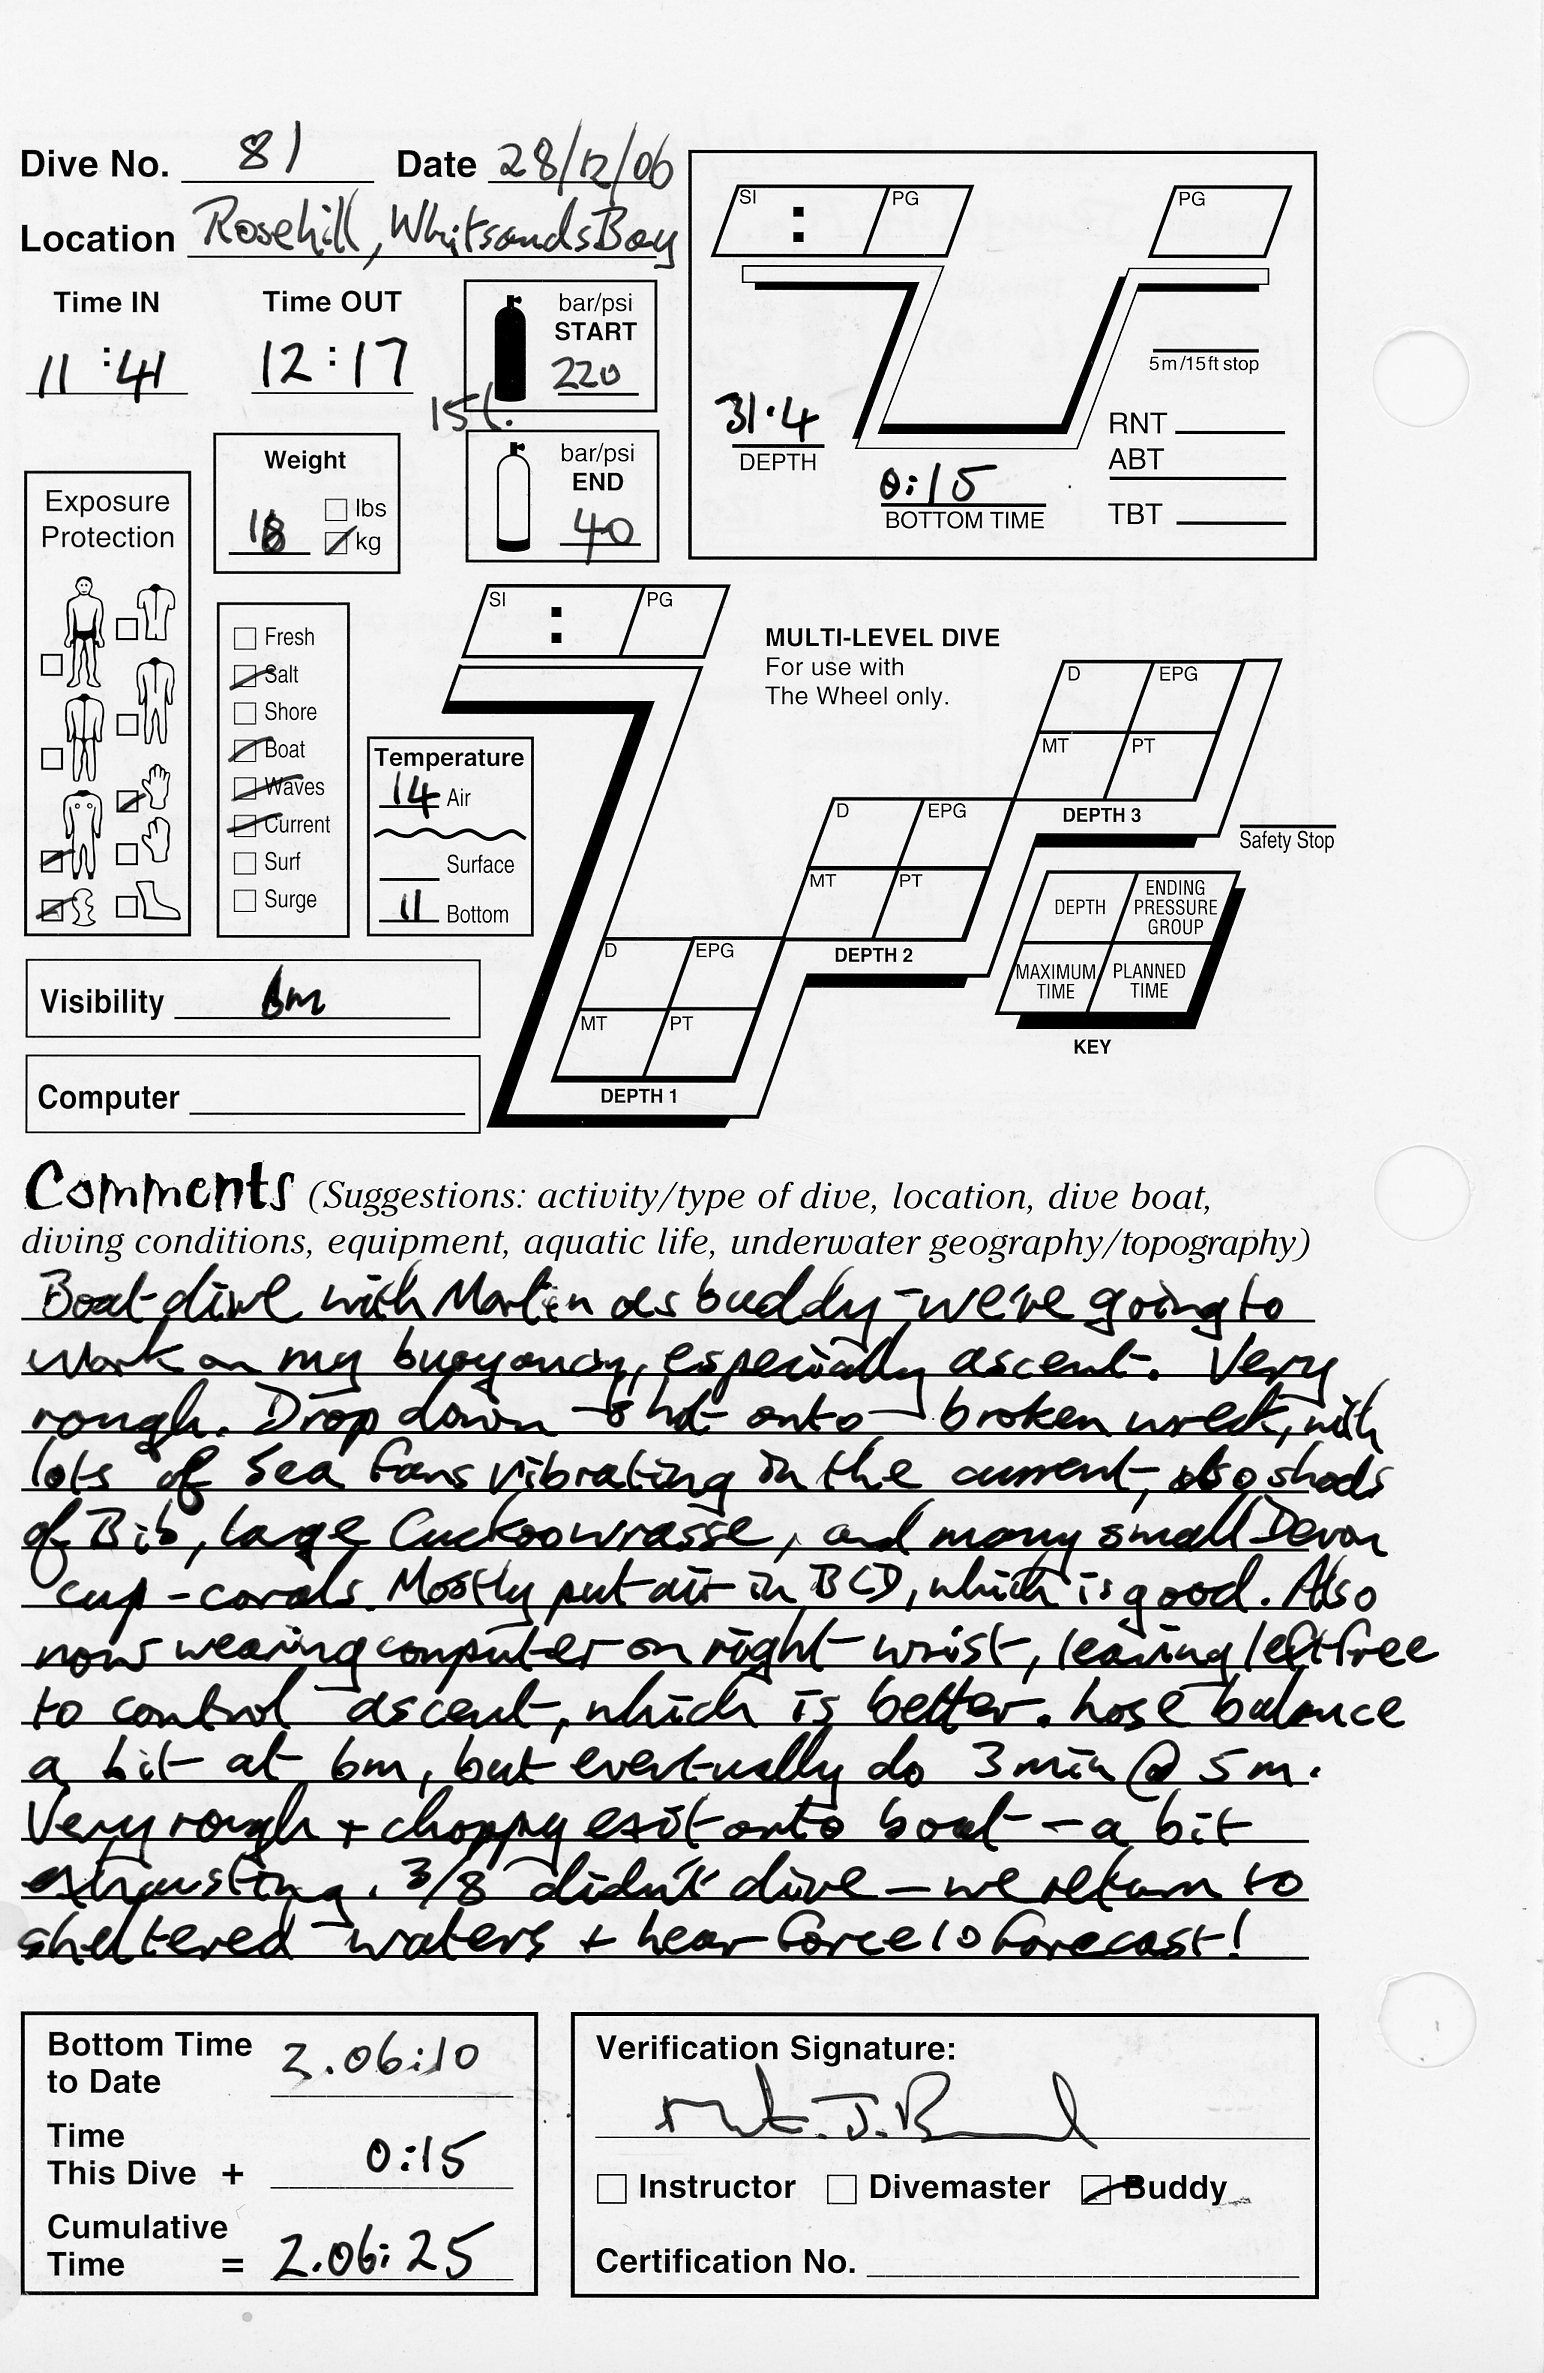 Dive No. 81 Date 28/12/06
Location Rosehill, Whitsands Bay
Time IN Time OUT
11:41 12:17
bar/psi
START
220
15l.
bar/psi
END
40
Weight
lbs
18 kg
Exposure
Protection
Fresh
Salt
Shore
Boat
Waves
Current
Surf
Surge
Temperature
14 Air
Surface
11 Bottom
Visibility 6m
Computer
SI : PG
PG
5m/15ft stop
31.4
DEPTH
0:15
BOTTOM TIME
RNT
ABT
TBT
SI : PG
MULTI-LEVEL DIVE
For use with
The Wheel only.
D EPG
MT PT
DEPTH 3
Safety Stop
D EPG
MT PT
DEPTH 2
D EPG
MT PT
DEPTH 1
DEPTH
ENDING
PRESSURE
GROUP
MAXIMUM
TIME
PLANNED
TIME
KEY
Comments (Suggestions: activity/type of dive, location, dive boat,
diving conditions, equipment, aquatic life, underwater geography/topography)
Boat dive with Martin as buddy - we're going to
work on my buoyancy, especially ascent. Very
rough. Drop down shot onto broken wreck, with
lots of Sea fans vibrating in the current, also shoals
of Bib, large Cuckoo wrasse, and many small Devon
cup-corals. Mostly put air in BCD, which is good. Also
now wearing computer on right wrist, leaving left free
to control ascent, which is better. Lose balance
a bit at 6m, but eventually do 3 min @ 5m.
Very rough + choppy exit onto boat - a bit
exhausting. 3/8 didn't dive - we return to
sheltered waters + hear force 10 forecast!
Bottom Time
to Date 2.06:10
Time
This Dive + 0:15
Cumulative
Time = 2.06:25
Verification Signature:
Instructor Divemaster Buddy
Certification No.